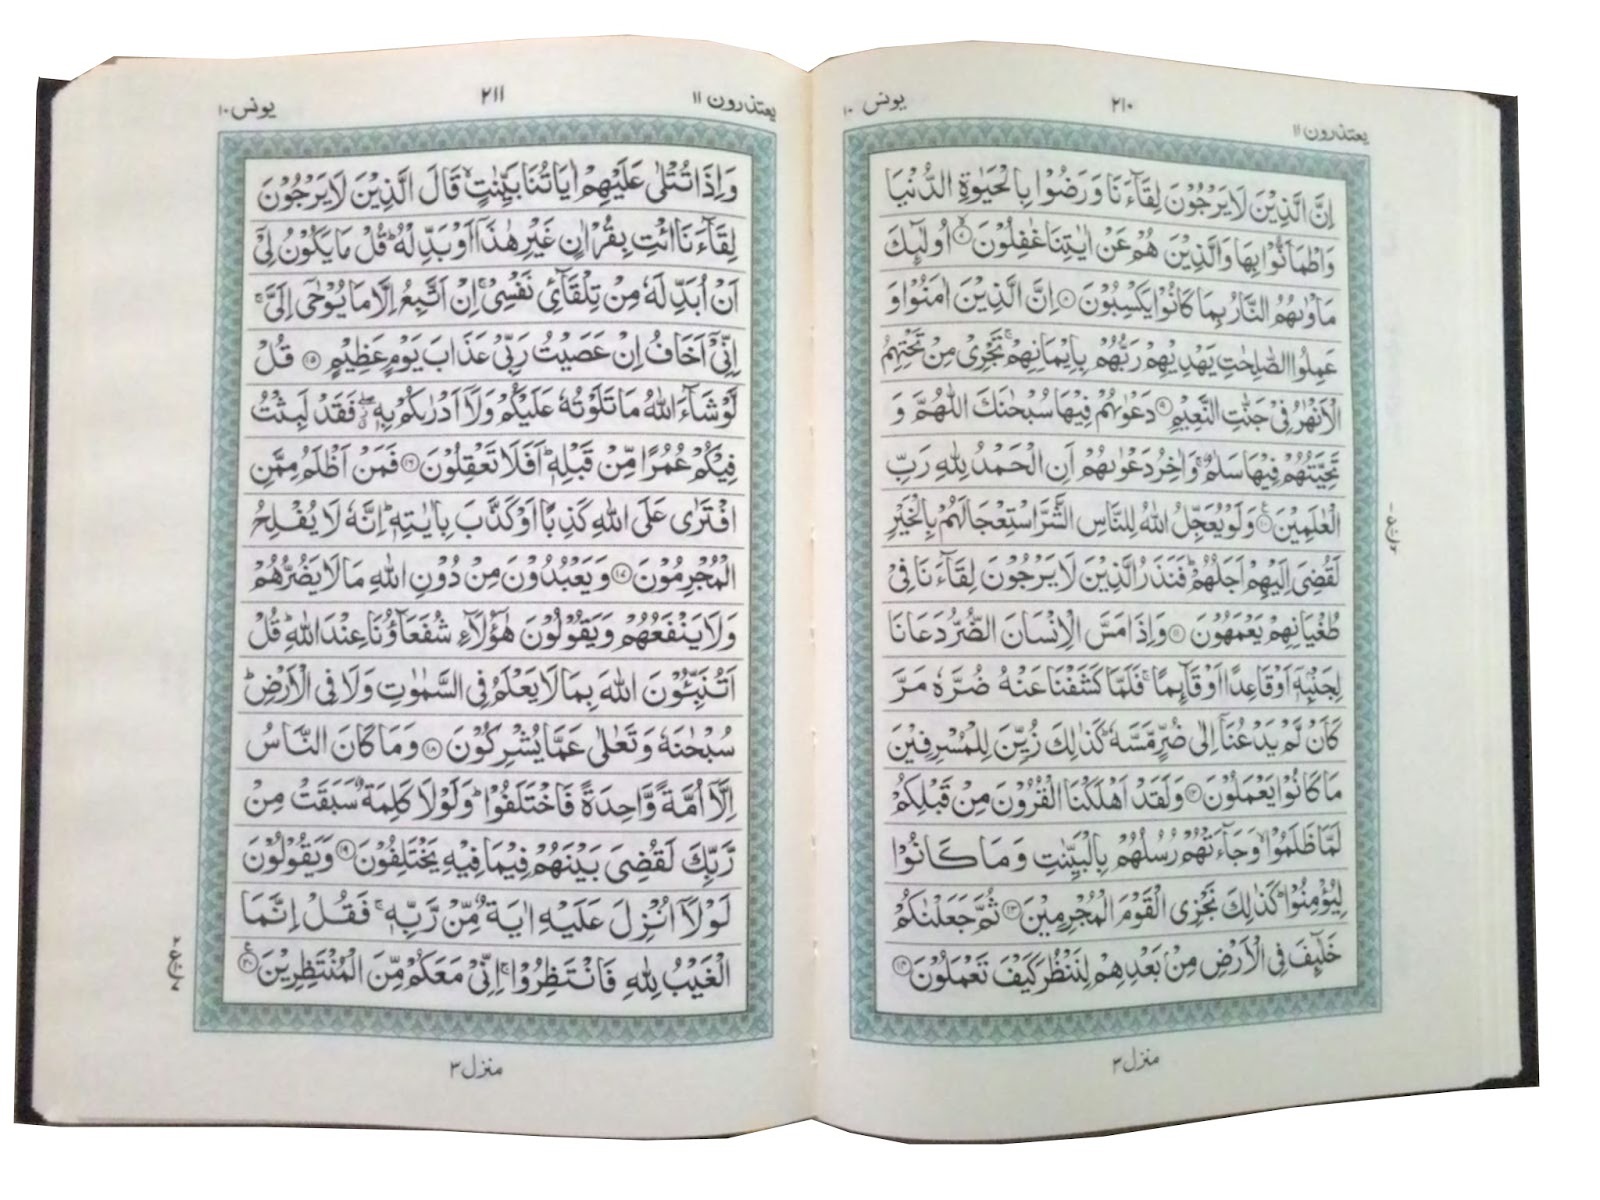 يعتذرون ١١
٢١٠
يونس ١٠
اِنَّ الَّذِيْنَ لَا يَرْجُوْنَ لِقَآءَنَا وَرَضُوْا بِالْحَيٰوةِ الدُّنْيَا
وَاطْمَاَنُّوْا بِهَا وَالَّذِيْنَ هُمْ عَنْ اٰيٰتِنَا غٰفِلُوْنَ ۙ﴿٧﴾ اُولٰٓئِكَ
مَاْوٰىهُمُ النَّارُ بِمَا كَانُوْا يَكْسِبُوْنَ ﴿٨﴾ اِنَّ الَّذِيْنَ اٰمَنُوْا وَ
عَمِلُوا الصّٰلِحٰتِ يَهْدِيْهِمْ رَبُّهُمْ بِاِيْمَانِهِمْ ۚ تَجْرِيْ مِنْ تَحْتِهِمُ
الْاَنْهٰرُ فِيْ جَنّٰتِ النَّعِيْمِ ﴿٩﴾ دَعْوٰىهُمْ فِيْهَا سُبْحٰنَكَ اللّٰهُمَّ وَ
تَحِيَّتُهُمْ فِيْهَا سَلٰمٌ ۚ وَاٰخِرُ دَعْوٰىهُمْ اَنِ الْحَمْدُ لِلّٰهِ رَبِّ
الْعٰلَمِيْنَ ﴿١٠﴾ وَلَوْ يُعَجِّلُ اللّٰهُ لِلنَّاسِ الشَّرَّ اسْتِعْجَالَهُمْ بِالْخَيْرِ
لَقُضِيَ اِلَيْهِمْ اَجَلُهُمْ ؕ فَنَذَرُ الَّذِيْنَ لَا يَرْجُوْنَ لِقَآءَنَا فِيْ
طُغْيَانِهِمْ يَعْمَهُوْنَ ﴿١١﴾ وَاِذَا مَسَّ الْاِنْسَانَ الضُّرُّ دَعَانَا
لِجَنْۢبِهٖٓ اَوْ قَاعِدًا اَوْ قَآئِمًا ۚ فَلَمَّا كَشَفْنَا عَنْهُ ضُرَّهٗ مَرَّ
كَاَنْ لَّمْ يَدْعُنَاۤ اِلٰى ضُرٍّ مَّسَّهٗ ؕ كَذٰلِكَ زُيِّنَ لِلْمُسْرِفِيْنَ
مَا كَانُوْا يَعْمَلُوْنَ ﴿١٢﴾ وَلَقَدْ اَهْلَكْنَا الْقُرُوْنَ مِنْ قَبْلِكُمْ
لَمَّا ظَلَمُوْا ۙ وَجَآءَتْهُمْ رُسُلُهُمْ بِالْبَيِّنٰتِ وَمَا كَانُوْا
لِيُؤْمِنُوْا ؕ كَذٰلِكَ نَجْزِي الْقَوْمَ الْمُجْرِمِيْنَ ﴿١٣﴾ ثُمَّ جَعَلْنٰكُمْ
خَلٰٓئِفَ فِي الْاَرْضِ مِنْۢ بَعْدِهِمْ لِنَنْظُرَ كَيْفَ تَعْمَلُوْنَ ﴿١٤﴾
منزل ٣
يعتذرون ١١
٢١١
يونس ١٠
وَاِذَا تُتْلٰى عَلَيْهِمْ اٰيَاتُنَا بَيِّنٰتٍ ۙ قَالَ الَّذِيْنَ لَا يَرْجُوْنَ
لِقَآءَنَا ائْتِ بِقُرْاٰنٍ غَيْرِ هٰذَاۤ اَوْ بَدِّلْهُ ؕ قُلْ مَا يَكُوْنُ لِيْۤ
اَنْ اُبَدِّلَهٗ مِنْ تِلْقَآئِ نَفْسِيْ ۚ اِنْ اَتَّبِعُ اِلَّا مَا يُوْحٰۤى اِلَيَّ ۚ
اِنِّيْۤ اَخَافُ اِنْ عَصَيْتُ رَبِّيْ عَذَابَ يَوْمٍ عَظِيْمٍ ﴿١٥﴾ قُلْ
لَّوْ شَآءَ اللّٰهُ مَا تَلَوْتُهٗ عَلَيْكُمْ وَلَاۤ اَدْرٰىكُمْ بِهٖ فَقَدْ لَبِثْتُ
فِيْكُمْ عُمُرًا مِّنْ قَبْلِهٖ ؕ اَفَلَا تَعْقِلُوْنَ ﴿١٦﴾ فَمَنْ اَظْلَمُ مِمَّنِ
افْتَرٰى عَلَى اللّٰهِ كَذِبًا اَوْ كَذَّبَ بِاٰيٰتِهٖ ؕ اِنَّهٗ لَا يُفْلِحُ
الْمُجْرِمُوْنَ ﴿١٧﴾ وَيَعْبُدُوْنَ مِنْ دُوْنِ اللّٰهِ مَا لَا يَضُرُّهُمْ
وَلَا يَنْفَعُهُمْ وَيَقُوْلُوْنَ هٰۤؤُلَآءِ شُفَعَآؤُنَا عِنْدَ اللّٰهِ ؕ قُلْ
اَتُنَبِّـُٔوْنَ اللّٰهَ بِمَا لَا يَعْلَمُ فِي السَّمٰوٰتِ وَلَا فِي الْاَرْضِ ؕ
سُبْحٰنَهٗ وَتَعٰلٰى عَمَّا يُشْرِكُوْنَ ﴿١٨﴾ وَمَا كَانَ النَّاسُ
اِلَّاۤ اُمَّةً وَّاحِدَةً فَاخْتَلَفُوْا ؕ وَلَوْلَا كَلِمَةٌ سَبَقَتْ مِنْ
رَّبِّكَ لَقُضِيَ بَيْنَهُمْ فِيْمَا فِيْهِ يَخْتَلِفُوْنَ ﴿١٩﴾ وَيَقُوْلُوْنَ
لَوْلَاۤ اُنْزِلَ عَلَيْهِ اٰيَةٌ مِّنْ رَّبِّهٖ ۚ فَقُلْ اِنَّمَا
الْغَيْبُ لِلّٰهِ فَانْتَظِرُوْا ۚ اِنِّيْ مَعَكُمْ مِّنَ الْمُنْتَظِرِيْنَ ﴿٢٠﴾
منزل ٣